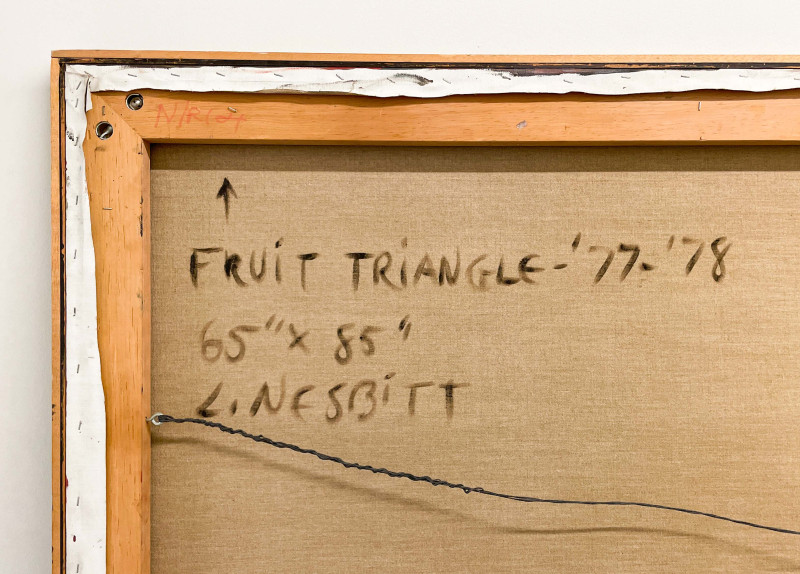 FRUIT TRIANGLE-'77-'78
65" X 85"
L. NESBITT